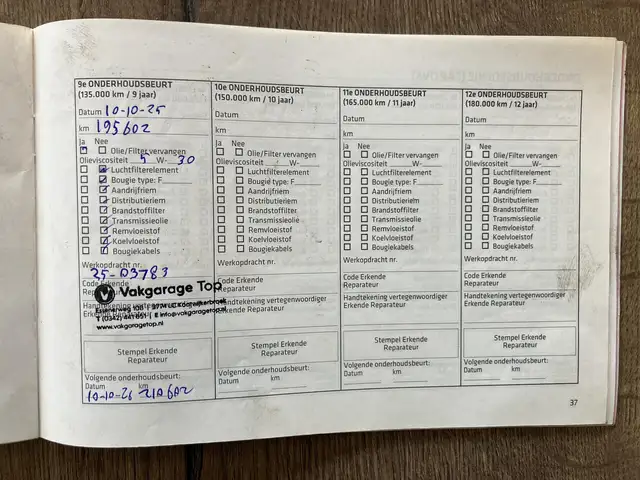 9e ONDERHOUDSBEURT
(135.000 km / 9 jaar)
Datum 10-10-25
km 195602
Ja Nee
Olie/Filter vervangen
Olieviscositeit 5 W- 30
Luchtfilterelement
Bougie type: F
Aandrijfriem
Distributieriem
Brandstoffilter
Transmissieolie
Remvloeistof
Koelvloeistof
Bougiekabels
Werkopdracht nr.
25-03783
Code Erkende
Reparateur
Vakgarage Top
Handtekening vertegenwoordiger
Erkende Reparateur
Essenerweg 108 | 3774 LC Kootwijkerbroek
T (0342) 441651 | E info@vakgaragetop.nl
www.vakgaragetop.nl
Stempel Erkende
Reparateur
Volgende onderhoudsbeurt:
Datum km
10-10-26 210602
10e ONDERHOUDSBEURT
(150.000 km / 10 jaar)
Datum
km
Ja Nee
Olie/Filter vervangen
Olieviscositeit W-
Luchtfilterelement
Bougie type: F
Aandrijfriem
Distributieriem
Brandstoffilter
Transmissieolie
Remvloeistof
Koelvloeistof
Bougiekabels
Werkopdracht nr.
Code Erkende
Reparateur
Handtekening vertegenwoordiger
Erkende Reparateur
Stempel Erkende
Reparateur
Volgende onderhoudsbeurt:
Datum km
11e ONDERHOUDSBEURT
(165.000 km / 11 jaar)
Datum
km
Ja Nee
Olie/Filter vervangen
Olieviscositeit W-
Luchtfilterelement
Bougie type: F
Aandrijfriem
Distributieriem
Brandstoffilter
Transmissieolie
Remvloeistof
Koelvloeistof
Bougiekabels
Werkopdracht nr.
Code Erkende
Reparateur
Handtekening vertegenwoordiger
Erkende Reparateur
Stempel Erkende
Reparateur
Volgende onderhoudsbeurt:
Datum km
12e ONDERHOUDSBEURT
(180.000 km / 12 jaar)
Datum
km
Ja Nee
Olie/Filter vervangen
Olieviscositeit W-
Luchtfilterelement
Bougie type: F
Aandrijfriem
Distributieriem
Brandstoffilter
Transmissieolie
Remvloeistof
Koelvloeistof
Bougiekabels
Werkopdracht nr.
Code Erkende
Reparateur
Handtekening vertegenwoordiger
Erkende Reparateur
Stempel Erkende
Reparateur
Volgende onderhoudsbeurt:
Datum km
37